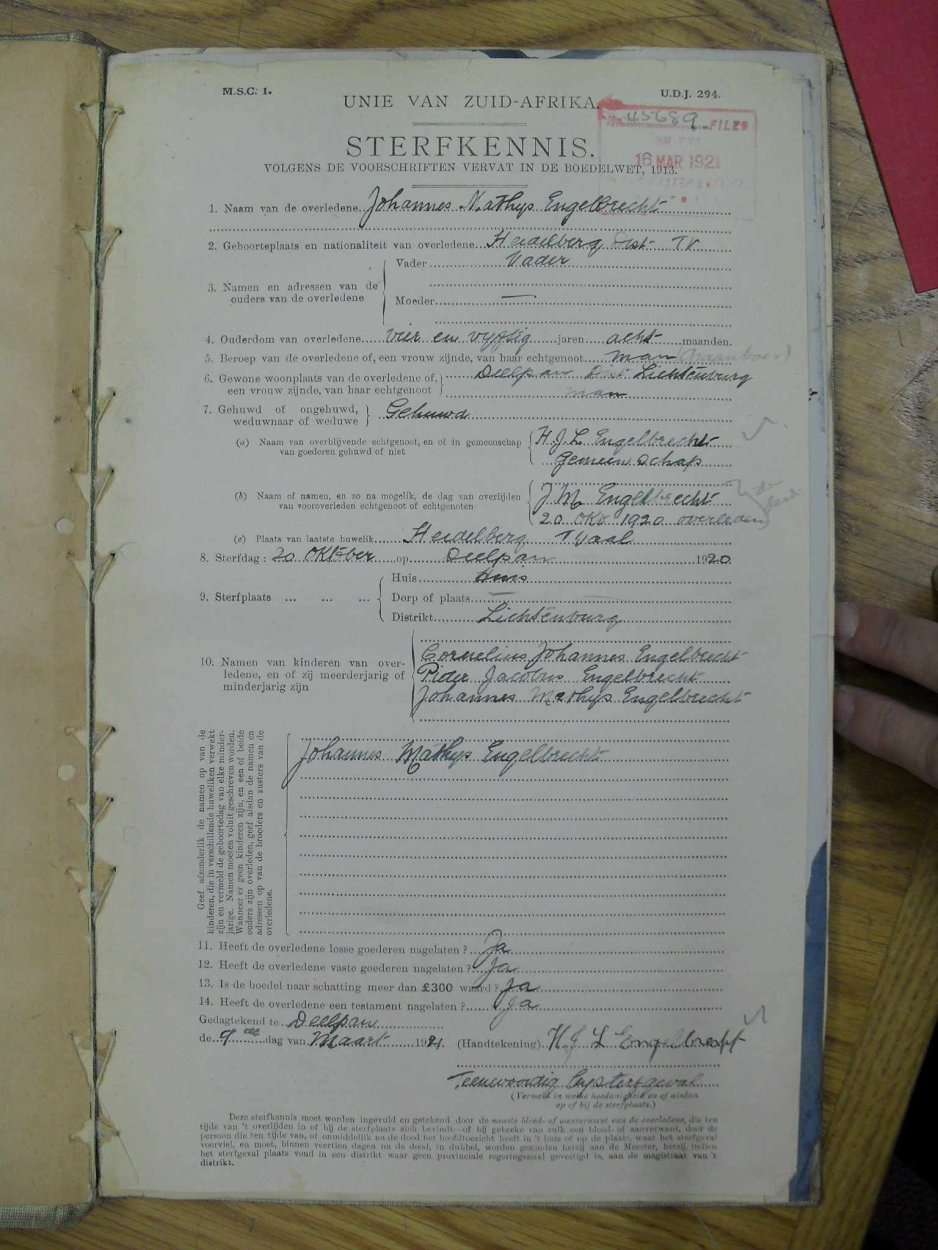 M.S.C. 1.
U.D.J. 294.
UNIE VAN ZUID-AFRIKA.
No. 45689 FILED
16 MAR 1921
STERFKENNIS.
VOLGENS DE VOORSCHRIFTEN VERVAT IN DE BOEDELWET, 1913.
1. Naam van de overledene Johannes Mathys Engelbrecht
2. Geboorteplaats en nationaliteit van overledene. Heidelberg Dist TV
3. Namen en adressen van de ouders van de overledene
Vader Vader
Moeder —
4. Ouderdom van overledene vier en vyftig jaren acht maanden.
5. Beroep van de overledene of, een vrouw zijnde, van haar echtgenoot man (Graanboer)
6. Gewone woonplaats van de overledene of, Deelpan Dist Lichtenburg
een vrouw zijnde, van haar echtgenoot man
7. Gehuwd of ongehuwd, weduwnaar of weduwe Gehuwd
(a) Naam van overblijvende echtgenoot, en of in gemeenschap H J L Engelbrecht
van goederen gehuwd of niet gemeenschap
(b) Naam of namen, en zo na mogelik, de dag van overlijden J M Engelbrecht
van vooroverleden echtgenoot of echtgenoten 20 Okt 1920 overleden
(c) Plaats van laatste huwelik Heidelberg Tvaal
8. Sterfdag : 20 Oktober op Deelpan 1920
9. Sterfplaats ... ... ...
Huis Huis
Dorp of plaats —
Distrikt Lichtenburg
10. Namen van kinderen van overledene, en of zij meerderjarig of minderjarig zijn
Cornelius Johannes Engelbrecht
Pieter Jacobus Engelbrecht
Johannes Mathys Engelbrecht
Geef afzonderlik de namen op van de
kinderen, die in verschillende huweliken verwekt
zijn en vermeld de geboortedag van elke minderjarige. Namen moeten voluit geschreven worden.
Wanneer er geen kinderen zijn, en een of beide
ouders zijn overleden, geef alsdan de namen en
adressen op van de broeders en zusters van de
overledene.
Johannes Mathys Engelbrecht
11. Heeft de overledene losse goederen nagelaten ? Ja
12. Heeft de overledene vaste goederen nagelaten ? Ja
13. Is de boedel naar schatting meer dan £300 waard ? Ja
14. Heeft de overledene een testament nagelaten ? Ja
Gedagtekend te Deelpan
de 9de dag van Maart 1921 (Handtekening) H J L Engelbrecht
Teenwoordig by sterfgeval
(Vermeld in welke hoedanigheid en of alsdan
op of bij de sterfplaats.)
Deze sterfkennis moet worden ingevuld en getekend door de naaste bloed- of aanverwant van de overledene, die ten
tijde van 't overlijden in of bij de sterfplaats zich bevindt—of bij gebreke van zulk een bloed- of aanverwant, door de
persoon die ten tijde van, of onmiddellik na de dood het hoofdtoezicht heeft in 't huis of op de plaats, waar het sterfgeval
voorviel, en moet, binnen veertien dagen na de dood, in dubbel, worden gezonden hetzij aan de Meester, hetzij, indien
het sterfgeval plaats vond in een distrikt waar geen provinciale regeringszetel gevestigd is, aan de magistraat van 't
distrikt.